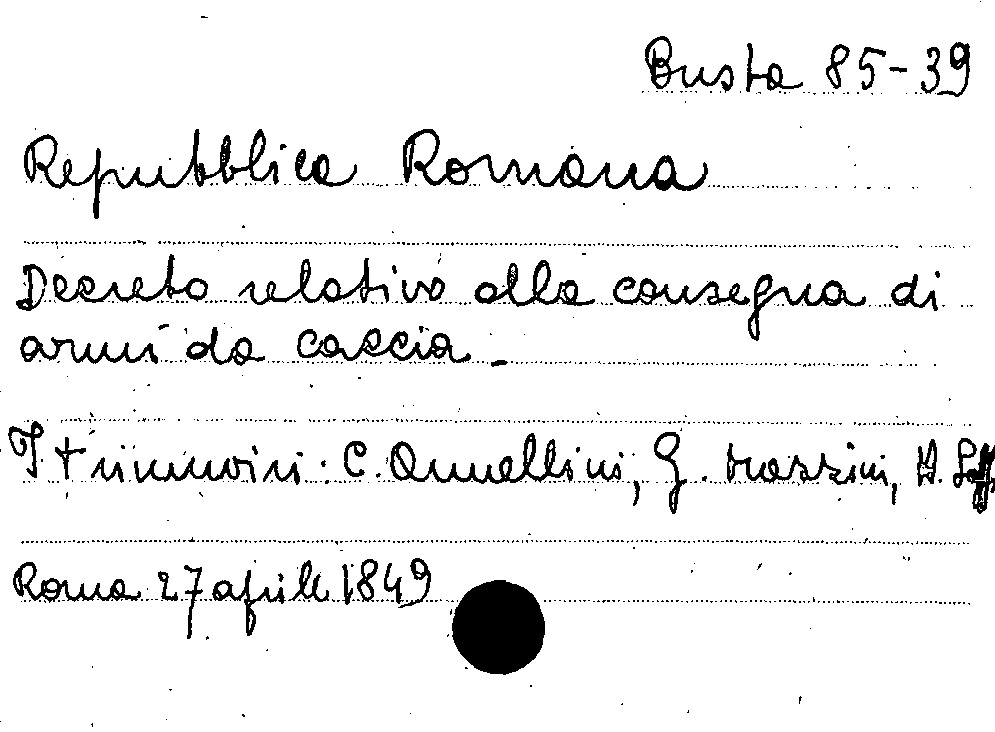 Busta 85-39
Repubblica Romana
Decreto relativo alla consegna di
armi da caccia.
I triumviri: C. Armellini, G. Mazzini, A. Saffi
Roma 27 aprile 1849